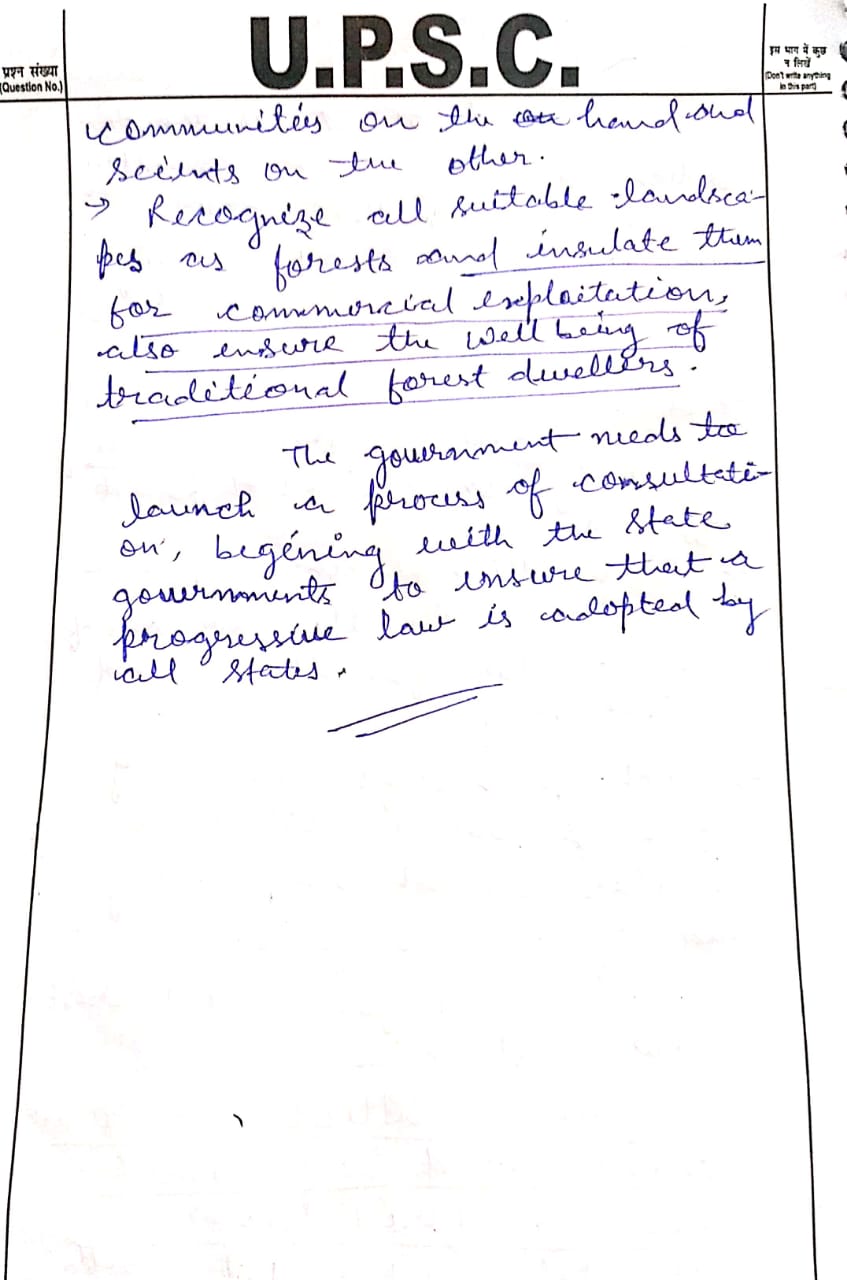 U.P.S.C.
प्रश्न संख्या
(Question No.)
इस भाग में कुछ
न लिखें
(Don't write anything
in this part)
communities on the hand and
sceints on the other.
→ Recognize all suitable landsca-
pes as forests and insulate them
for commercial exploitation,
also ensure the well being of
traditional forest dwellers.
The government needs to
launch a process of consultati-
on, begening with the state
governments to ensure that a
progressive law is adopted by
all states.